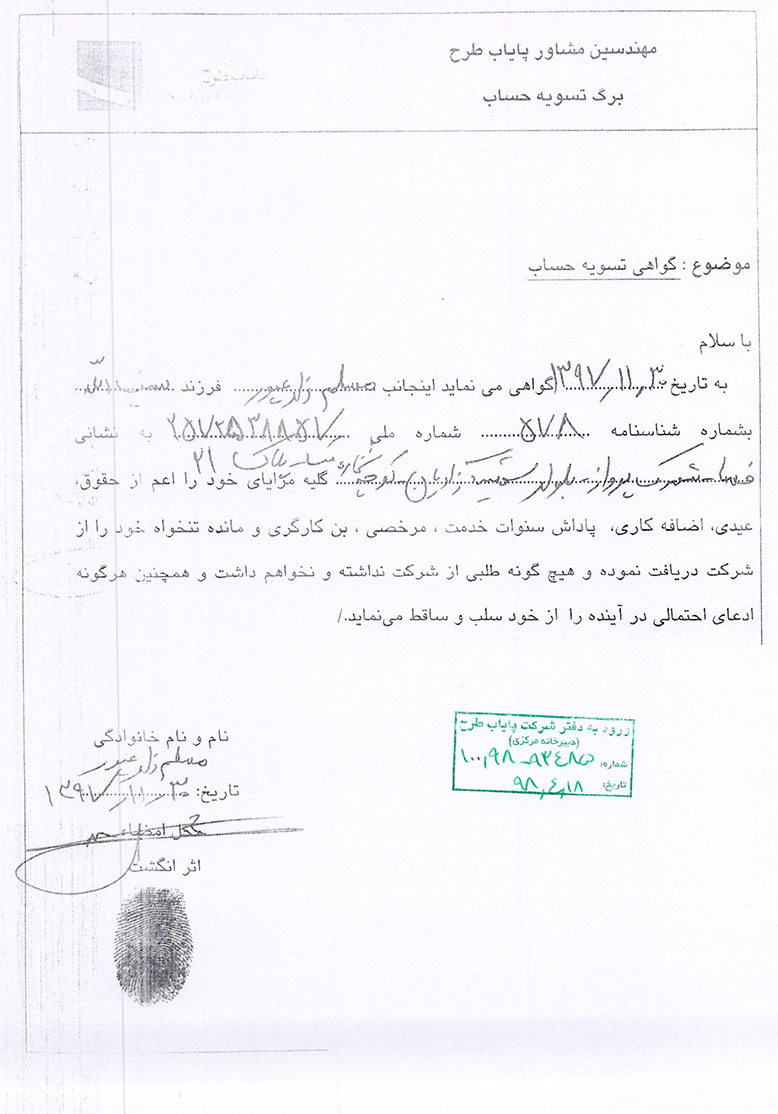 مهندسین مشاور پایاب طرح
برگ تسویه حساب
موضوع : گواهی تسویه حساب
با سلام
به تاریخ ۱۳۹۷/۱۱/۳۰ گواهی می نماید اینجانب مسلم فرزند
بشماره شناسنامه ۵۷۸ شماره ملی به نشانی
پلاک ۲۱
فسا شهرک کلیه مزایای خود را اعم از حقوق،
عیدی، اضافه کاری، پاداش سنوات خدمت ، مرخصی ، بن کارگری و مانده تنخواه خود را از
شرکت دریافت نموده و هیچ گونه طلبی از شرکت نداشته و نخواهم داشت و همچنین هرگونه
ادعای احتمالی در آینده را از خود سلب و ساقط می‌نماید./
ورود به دفتر شرکت پایاب طرح
(دبیرخانه مرکزی)
شماره:
تاریخ: ۹۸,۴,۱۸
نام و نام خانوادگی
مسلم
تاریخ: ۱۳۹۷/۱۱/۳۰
محل امضاء
اثر انگشت